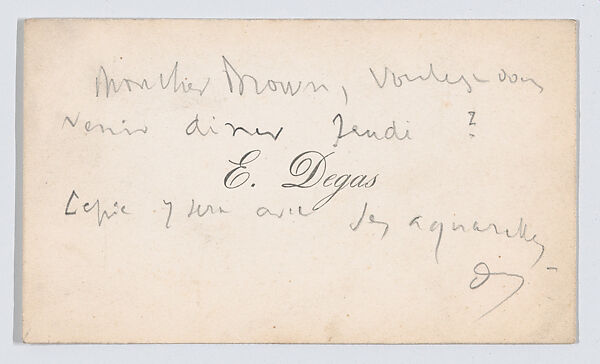 Mon cher Brown, voulez-vous
venir diner Jeudi ?
E. Degas
Lepic y sera avec ses aquarelles